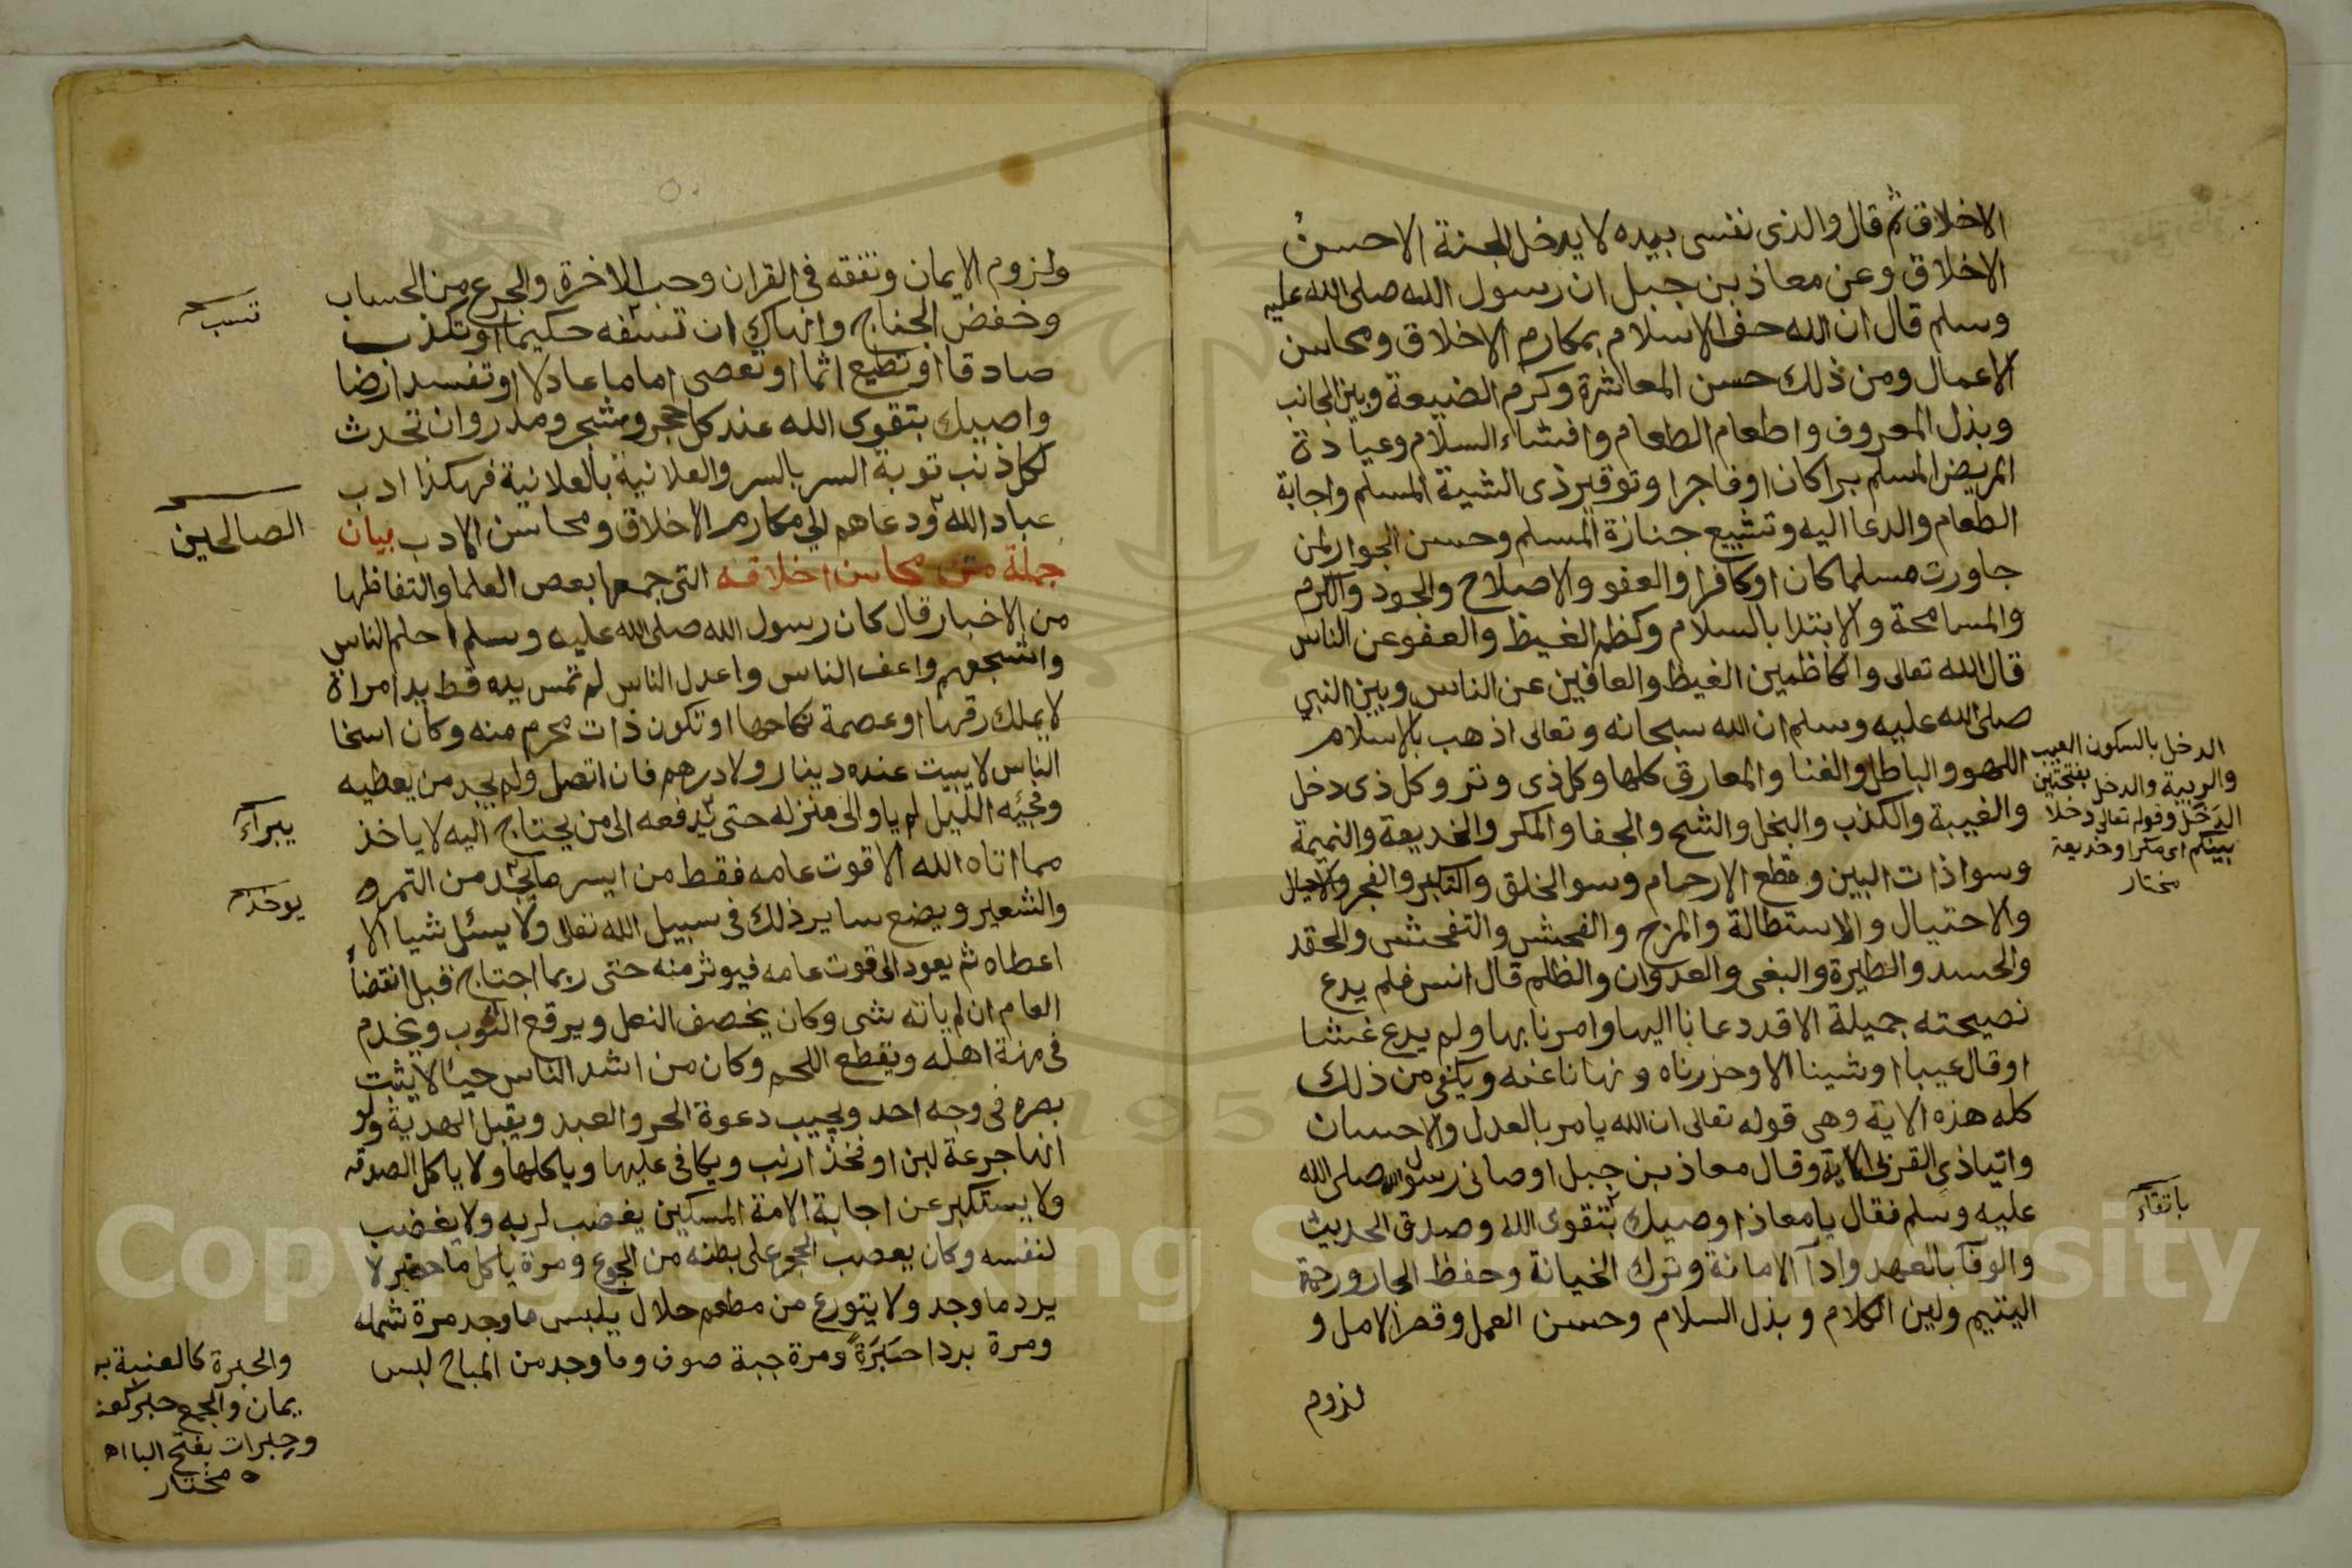 الاخلاق ثم قال والذى نفسى بيده لا يدخل الجنة الا حسنُ
الاخلاق وعن معاذ بن جبل ان رسول الله صلى الله عليه
وسلم قال ان الله حف الاسلام بمكارم الاخلاق ومحاسن
الاعمال ومن ذلك حسن المعاشرة وكرم الضيعة ولين الجانب
وبذل المعروف واطعام الطعام وافشاء السلام وعيادة
المريض المسلم براكان اوفاجرا وتوقير ذى الشيبة المسلم واجابة
الطعام والدعا اليه وتشييع جنازة المسلم وحسن الجوار لمن
جاورت مسلما كان اوكافرا والعفو والاصلاح والجود والكرم
والمسامحة والابتدا بالسلام وكظم الغيظ والعفو عن الناس
قال الله تعالى والكاظمين الغيظ والعافين عن الناس وبين النبي
صلى الله عليه وسلم ان الله سبحانه وتعالى اذهب بالاسلام
اللهو والباطل والغنا والمعازف كلها وكل ذى وتر وكل ذى دخل
والغيبة والكذب والبخل والشح والجفا والمكر والخديعة والنميمة
وسوا ذات البين وقطع الارحام وسو الخلق والتكبر والفجر
والاحتيال والاستطالة والمزح والفحش والتفحش والحقد
والحسد والطيرة والبغى والعدوان والظلم قال انس فلم يدع
نصيحته جميلة الا قد دعانا اليها وامرنا بها ولم يدع غشا
اوقال عيبا اوشينا الا وحزرناه ونهانا عنه ويكفى من ذلك
كله هذه الاية وهى قوله تعالى ان الله يامر بالعدل والاحسان
وايتاذى القربى الاية وقال معاذ بن جبل اوصانى رسول الله صلى الله
عليه وسلم فقال يا معاذ اوصيك بتقوى الله وصدق الحديث
والوفآ بالعهد وادآ الامانة وترك الخيانة وحفظ الجار ورحمة
اليتيم ولين الكلام وبذل السلام وحسن العمل وقصر الامل و
لزوم
الدخل بالسكون العيب
والريبة والدخل بفتحتين
الدَخَل وقوله تعالى دخلا
بينكم اى مكرا وخديعة
مختار
باتقاء
ولزوم الايمان وتفقه فى القران وحب الاخرة والجزع من الحساب
وخفض الجناح وانهاك ان تسفه حكيما اوتكذب
صادقا اوتطيع اثما اوتعصى اماما عادلا اوتفسد ارضا
واصيك بتقوى الله عند كل حجر وشجر ومدر وان تحدث
لكل ذنب توبة السر بالسر والعلانية بالعلانية فهكذا ادب
عباد الله ودعاهم الى مكارم الاخلاق ومحاسن الادب بيان
جملة من محاسن اخلاقه التى جمعها بعض العلما والتقاظها
من الاخبار قال كان رسول الله صلى الله عليه وسلم احلم الناس
واشجعهم واعف الناس واعدل الناس لم تمس يده قط يد امراة
لايملك رقها اوعصمة نكاحها اوتكون ذات محرم منه وكان اسخا
الناس لايبيت عنده دينار ولا درهم فان اتصل ولم يجد من يعطيه
وفجيئه الليل لم ياو الى منزله حتى يدفعه الى من يحتاج اليه لا ياخذ
مما اتاه الله الا قوت عامه فقط من ايسر مايجد من التمر و
والشعير ويضع ساير ذلك فى سبيل الله تعالى ولا يسئل شيا الا
اعطاه ثم يعود الى قوت عامه فيوثر منه حتى ربما احتاج قبل انقضأ
العام ان لم ياته شى وكان يخصف النعل ويرقع الثوب ويخدم
فى مهنة اهله ويقطع اللحم وكان من اشد الناس حيأ لايثبت
بصره فى وجه احد ويجيب دعوة الحر والعبد ويقبل الهدية ولو
انها جرعة لبن اوفخذ ارنب ويكافى عليها وياكلها ولا ياكل الصدقه
ولا يستكبر عن اجابة الامة المسكين يغضب لربه ولا يغضب
لنفسه وكان يعصب الحجر على بطنه من الجوع ومرة ياكل ما حضر لا
يرد ما وجد ولا يتورع من مطعم حلال يلبس ما وجد مرة شمله
ومرة بردا حَبَرَةً ومرة جبة صوف وما وجد من المباح لبس
الصالحين
يبرآء
يوخذ
والحبرة كالعنبة بر
يمان والجمع حبر كعنب
وحبرات بفتح البا اه
مختار
Copyright © King Saud University
1957